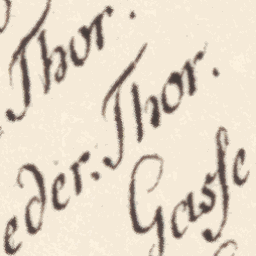 Thor.
eder. Thor.
Gasse